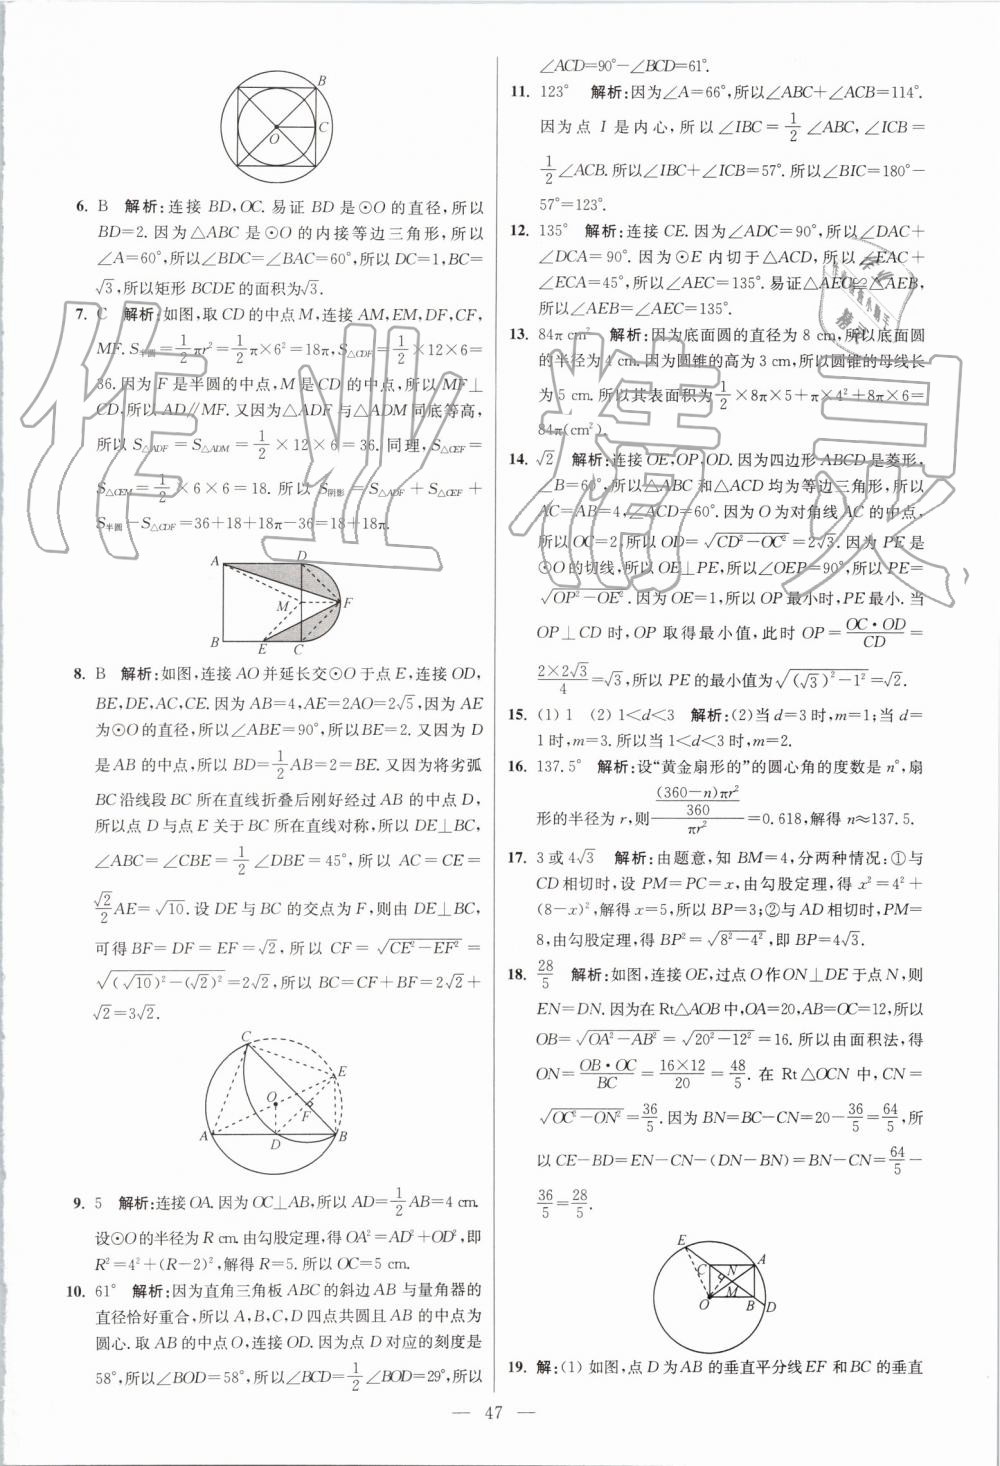 B
C
O
6. B 解析:连接 BD,OC. 易证 BD 是⊙O 的直径,所以
BD=2. 因为△ABC 是⊙O 的内接等边三角形,所以
∠A=60°,所以∠BDC=∠BAC=60°,所以 DC=1,BC=
√3,所以矩形 BCDE 的面积为√3.
7. C 解析:如图,取 CD 的中点 M,连接 AM,EM,DF,CF,
MF. S半圆=1/2πr²=1/2π×6²=18π,S△CDF=1/2×12×6=
36. 因为 F 是半圆的中点,M 是 CD 的中点,所以 MF⊥
CD,所以 AD∥MF. 又因为△ADF 与△ADM 同底等高,
所以 S△ADF=S△ADM=1/2×12×6=36. 同理,S△CEF=
S△CEM=1/2×6×6=18. 所以 S阴影=S△ADF+S△CEF+
S半圆-S△CDF=36+18+18π-36=18+18π.
A D
M F
B E C
8. B 解析:如图,连接 AO 并延长交⊙O 于点 E,连接 OD,
BE,DE,AC,CE. 因为 AB=4,AE=2AO=2√5,因为 AE
为⊙O 的直径,所以∠ABE=90°,所以BE=2. 又因为 D
是AB 的中点,所以 BD=1/2AB=2=BE. 又因为将劣弧
BC沿线段BC 所在直线折叠后刚好经过 AB 的中点 D,
所以点 D 与点 E 关于 BC 所在直线对称,所以 DE⊥BC,
∠ABC=∠CBE=1/2∠DBE=45°,所以 AC=CE=
√2/2AE=√10. 设 DE 与 BC 的交点为 F,则由 DE⊥BC,
可得 BF=DF=EF=√2,所以 CF=√(CE²-EF²)=
√((√10)²-(√2)²)=2√2,所以 BC=CF+BF=2√2+
√2=3√2.
C
E
O
F
A D B
9. 5 解析:连接 OA. 因为 OC⊥AB,所以 AD=1/2AB=4 cm.
设⊙O 的半径为 R cm. 由勾股定理,得 OA²=AD²+OD²,即
R²=4²+(R-2)²,解得 R=5. 所以 OC=5 cm.
10. 61° 解析:因为直角三角板 ABC 的斜边 AB 与量角器的
直径恰好重合,所以 A,B,C,D 四点共圆且 AB 的中点为
圆心. 取 AB 的中点 O,连接 OD. 因为点 D 对应的刻度是
58°,所以∠BOD=58°,所以∠BCD=1/2∠BOD=29°,所以
∠ACD=90°-∠BCD=61°.
11. 123° 解析:因为∠A=66°,所以∠ABC+∠ACB=114°.
因为点 I 是内心,所以∠IBC=1/2∠ABC,∠ICB=
1/2∠ACB. 所以∠IBC+∠ICB=57°. 所以∠BIC=180°-
57°=123°.
12. 135° 解析:连接 CE. 因为∠ADC=90°,所以∠DAC+
∠DCA=90°. 因为⊙E 内切于△ACD,所以∠EAC+
∠ECA=45°,所以∠AEC=135°. 易证△AEC≌△AEB,
所以∠AEB=∠AEC=135°.
13. 84π cm² 解析:因为底面圆的直径为 8 cm,所以底面圆
的半径为 4 cm. 因为圆锥的高为 3 cm,所以圆锥的母线长
为 5 cm. 所以其表面积为1/2×8π×5+π×4²+8π×6=
84π(cm²).
14. √2 解析:连接 OE,OP,OD. 因为四边形 ABCD 是菱形,
∠B=60°,所以△ABC 和△ACD 均为等边三角形,所以
AC=AB=4,∠ACD=60°. 因为 O 为对角线 AC 的中点,
所以 OC=2,所以 OD=√(CD²-OC²)=2√3. 因为 PE 是
⊙O 的切线,所以 OE⊥PE,所以∠OEP=90°,所以 PE=
√(OP²-OE²). 因为 OE=1,所以 OP 最小时,PE 最小. 当
OP⊥CD 时,OP 取得最小值,此时 OP=OC·OD/CD=
2×2√3/4=√3,所以 PE 的最小值为√((√3)²-1²)=√2.
15. (1) 1 (2) 1<d<3 解析:(2)当 d=3 时,m=1;当 d=
1时,m=3. 所以当 1<d<3 时,m=2.
16. 137.5° 解析:设“黄金扇形的”的圆心角的度数是 n°,扇
形的半径为 r,则((360-n)πr²/360)/πr²=0.618,解得 n≈137.5.
17. 3 或 4√3 解析:由题意,知 BM=4,分两种情况:①与
CD 相切时,设 PM=PC=x,由勾股定理,得 x²=4²+
(8-x)²,解得 x=5,所以 BP=3;②与 AD 相切时,PM=
8,由勾股定理,得 BP²=√(8²-4²),即 BP=4√3.
18. 28/5 解析:如图,连接 OE,过点 O 作 ON⊥DE 于点 N,则
EN=DN. 因为在 Rt△AOB 中,OA=20,AB=OC=12,所以
OB=√(OA²-AB²)=√(20²-12²)=16. 所以由面积法,得
ON=OB·OC/BC=16×12/20=48/5. 在 Rt△OCN 中,CN=
√(OC²-ON²)=36/5. 因为 BN=BC-CN=20-36/5=64/5,所
以 CE-BD=EN-CN-(DN-BN)=BN-CN=64/5-
36/5=28/5.
E
C N A
O M B D
19. 解:(1) 如图,点 D 为 AB 的垂直平分线 EF 和 BC 的垂直
— 47 —
作业精灵